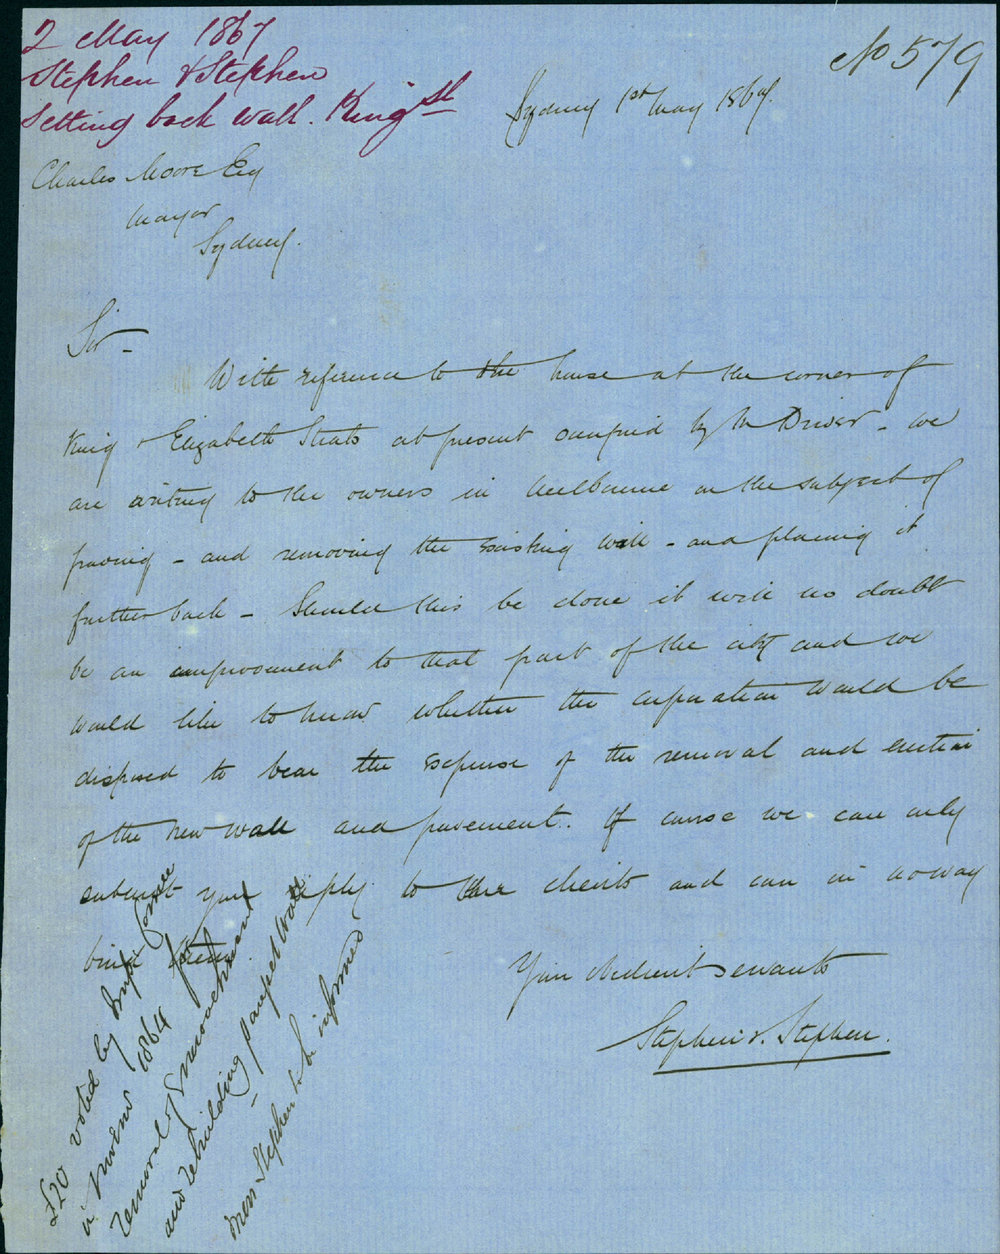 2 May 1867
Stephen & Stephen
Setting back wall. King St
No 579
Sydney 1st May 1867.
Charles Moore Esq
Mayor
Sydney.
Sir -
With reference to the house at the corner of
King & Elizabeth Streets at present occupied by Mr Driver - we
are writing to the owners in Melbourne on the subject of
paving - and removing the existing wall - and placing it
further back - Should this be done it will no doubt
be an improvement to that part of the city and we
would like to know whether the corporation would be
disposed to bear the expense of the removal and erection
of the new wall and pavement. Of course we can only
submit your reply to the clients and can in no way
bind them
Your obedient servants
Stephen & Stephen.
£20 voted by Impt Comee
in Novem 1864 for
removal of Encroachment
and rebuilding parapet wall
Messrs Stephen to be informed